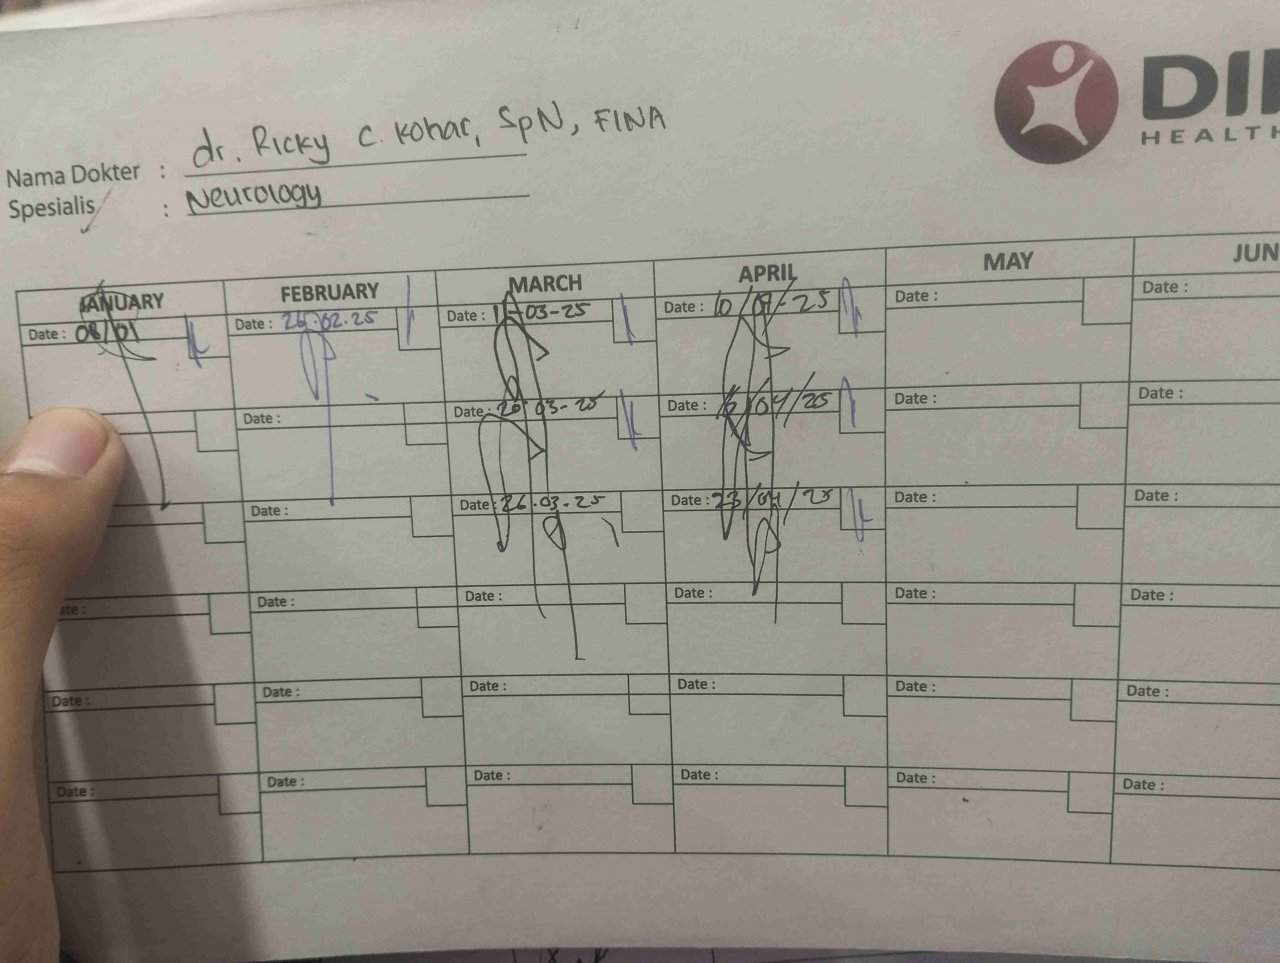 DI
HEALTH
Nama Dokter : dr. Ricky C. Kohar, SpN, FINA
Spesialis : Neurology
JANUARY FEBRUARY MARCH APRIL MAY JUN
Date : 08/01 Date : 26.02.25 Date : 11-03-25 Date : 10/04-25 Date : Date :
Date : Date : 20 03-25 Date : 16/04/25 Date : Date :
Date : Date : 26.03.25 Date : 23/04/25 Date : Date :
Date : Date : Date : Date : Date : Date :
Date : Date : Date : Date : Date : Date :
Date : Date : Date : Date : Date : Date :